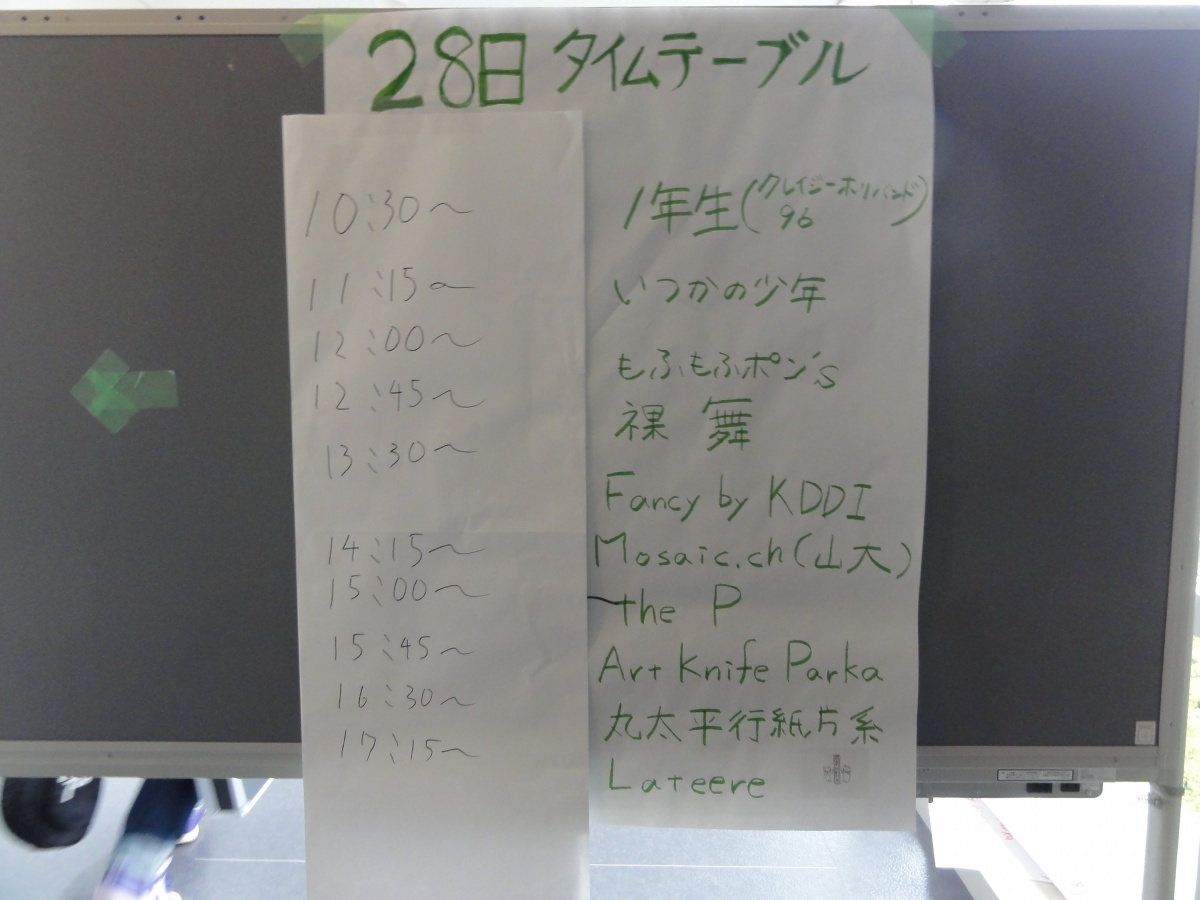 28日 タイムテーブル
10:30～ 1年生(クレイジーホリバンド
96)
11:15～ いつかの少年
12:00～ もふもふポン's
12:45～ 裸舞
13:30～ Fancy by KDDI
14:15～ Mosaic.ch(山大)
15:00～ the P
15:45～ Art Knife Parka
16:30～ 丸太平行紙片系
17:15～ Lateere